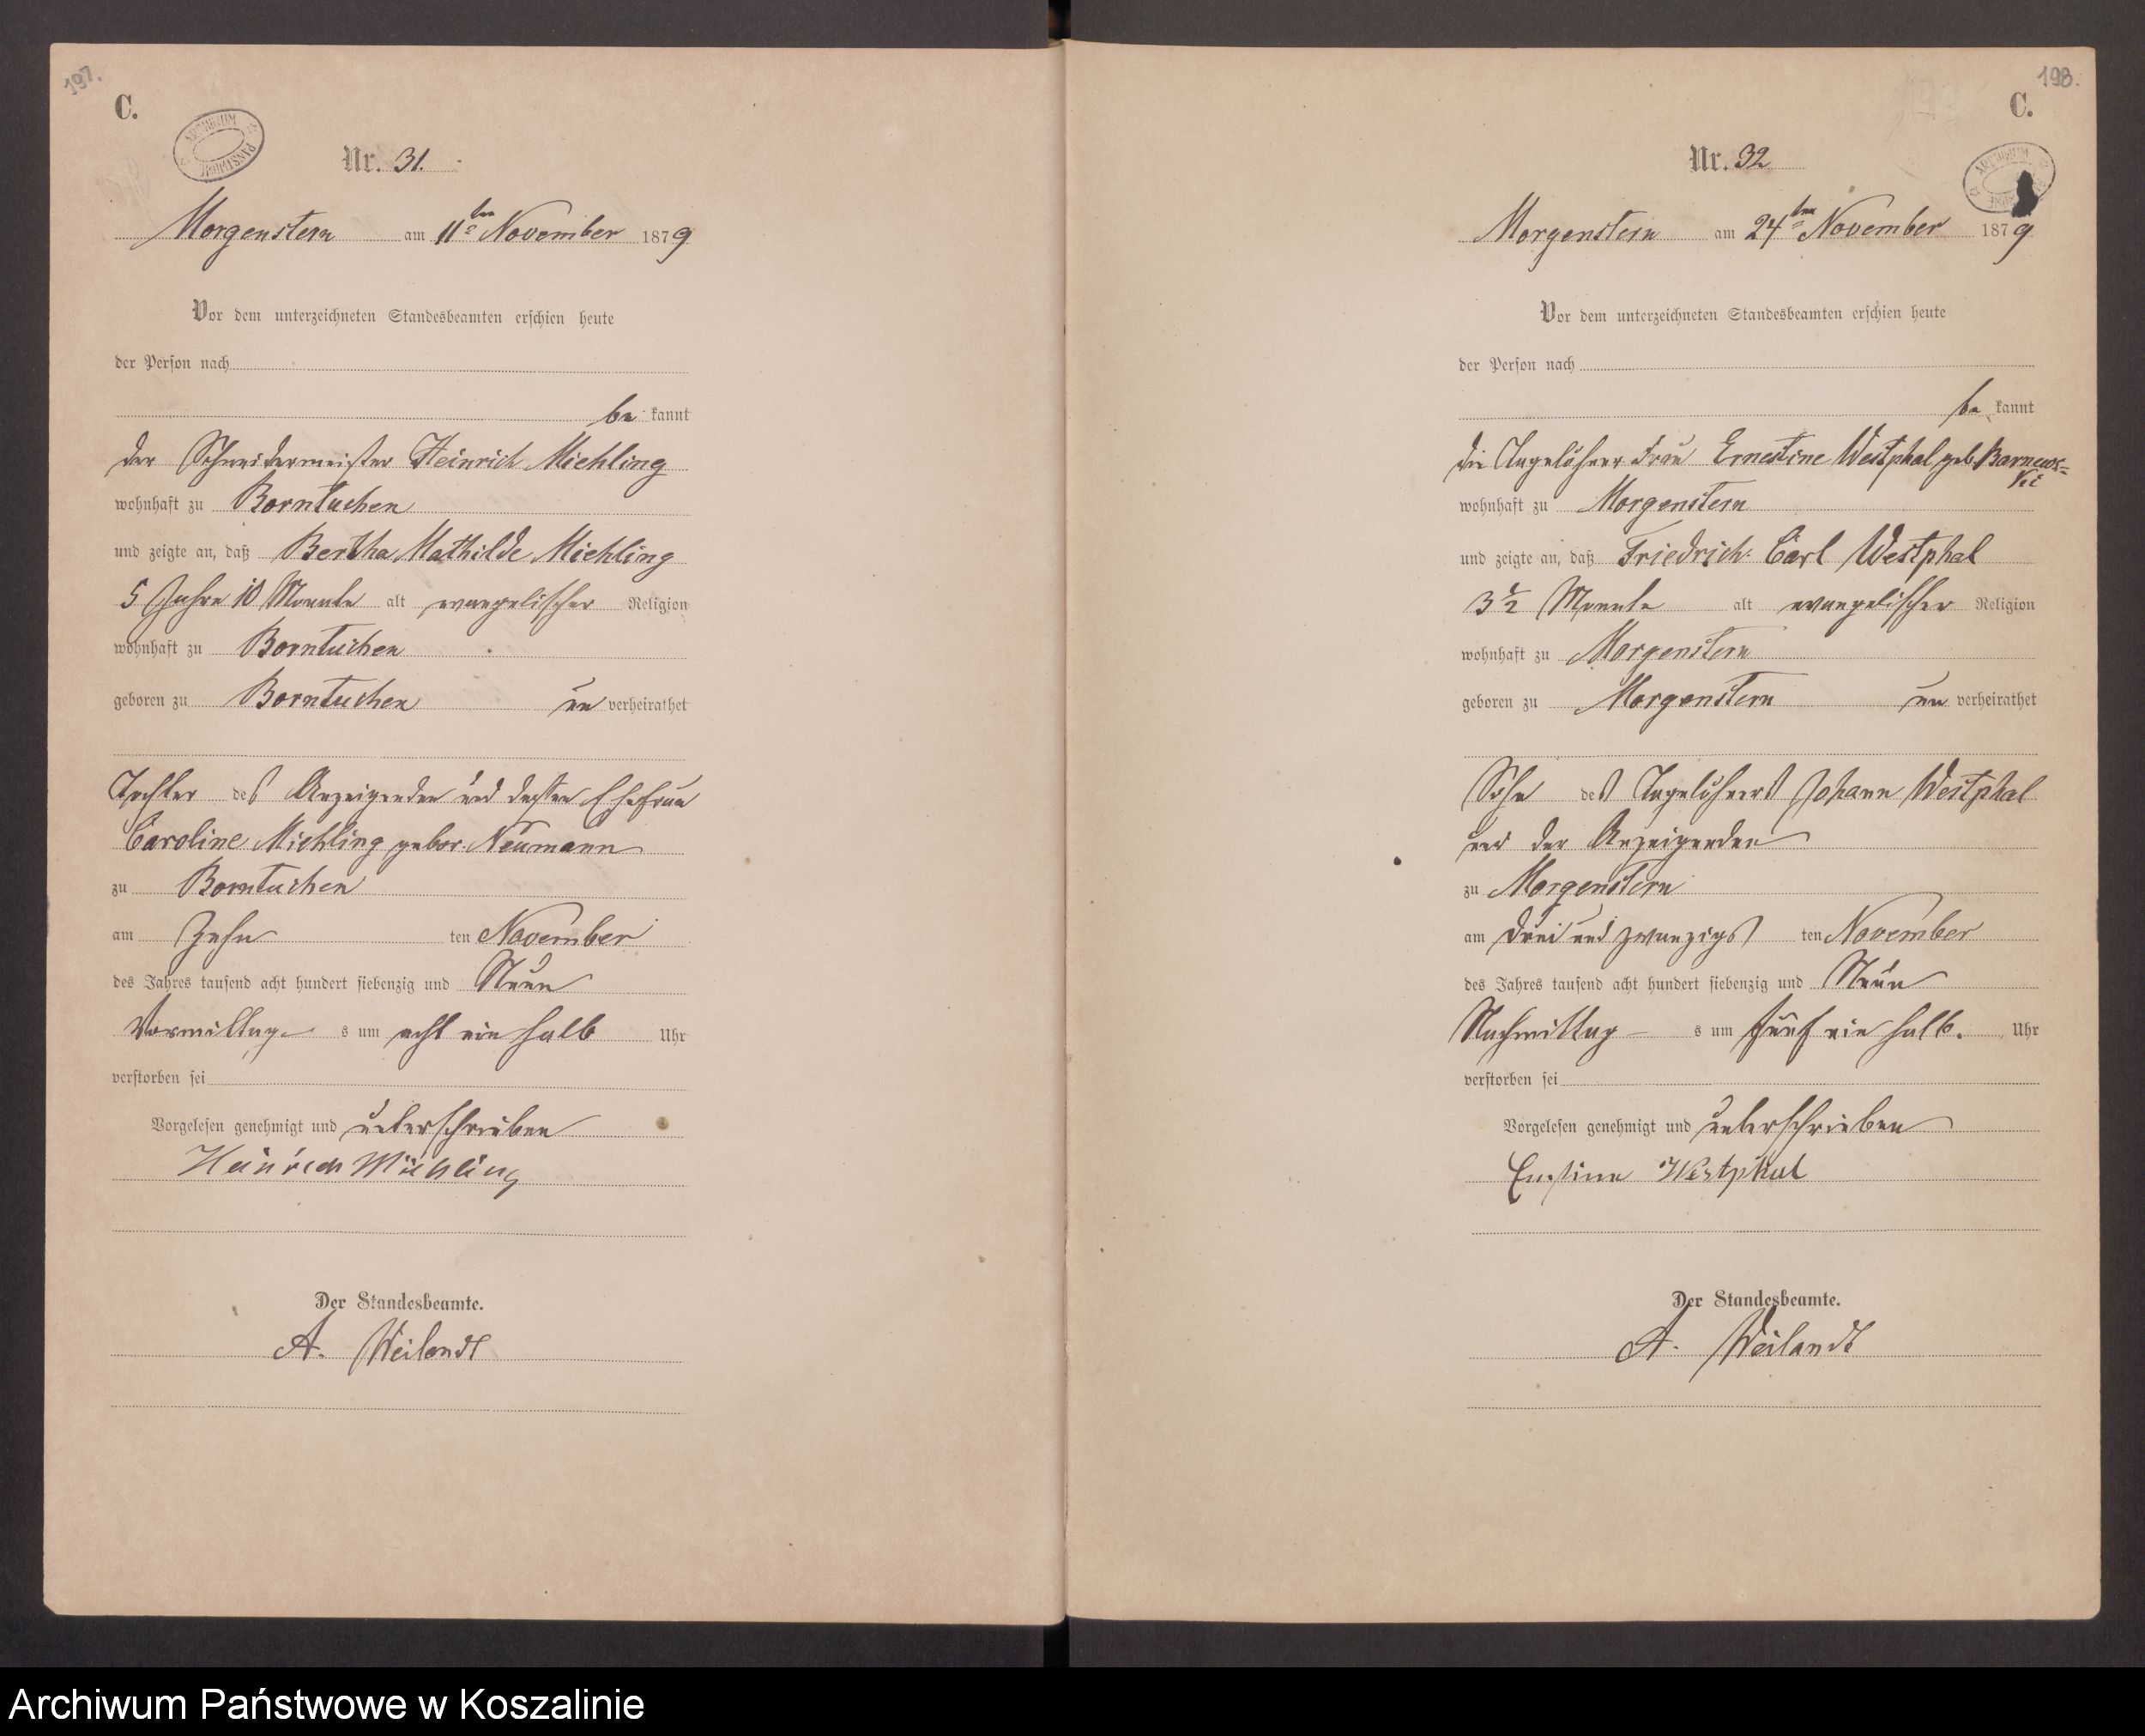 197.
C.
ARCHIWUM PAŃSTWOWE
Nr. 31.
Morgenstern am 11ten November 1879
Vor dem unterzeichneten Standesbeamten erschien heute
der Person nach
be kannt
der Schneidermeister Heinrich Miehling
wohnhaft zu Borntuchen
und zeigte an, daß Bertha Mathilde Miehling
5 Jahre 10 Monate alt evangelischer Religion
wohnhaft zu Borntuchen
geboren zu Borntuchen un verheirathet
Tochter des Anzeigenden und dessen Ehefrau
Caroline Miehling gebor. Neumann
zu Borntuchen
am Zehn ten November
des Jahres tausend acht hundert siebenzig und Neun
Vormittag s um acht ein halb Uhr
verstorben sei
Vorgelesen genehmigt und unterschrieben
Heinrich Miehling
Der Standesbeamte.
A. Weilandt
198.
C.
ARCHIWUM
Nr. 32
Morgenstern am 24ten November 1879
Vor dem unterzeichneten Standesbeamten erschien heute
der Person nach
be kannt
die Tagelöhner Frau Ernestine Westphal geb. Barnews=
ki
wohnhaft zu Morgenstern
und zeigte an, daß Friedrich Carl Westphal
3 1/2 Monate alt evangelischer Religion
wohnhaft zu Morgenstern
geboren zu Morgenstern un verheirathet
Sohn des Tagelöhners Johann Westphal
und der Anzeigenden
zu Morgenstern
am drei und zwanzigs ten November
des Jahres tausend acht hundert siebenzig und Neun
Nachmittag s um fünf ein halb. Uhr
verstorben sei
Vorgelesen genehmigt und unterschrieben
Ernstine Westphal
Der Standesbeamte.
A. Weilandt
Archiwum Państwowe w Koszalinie